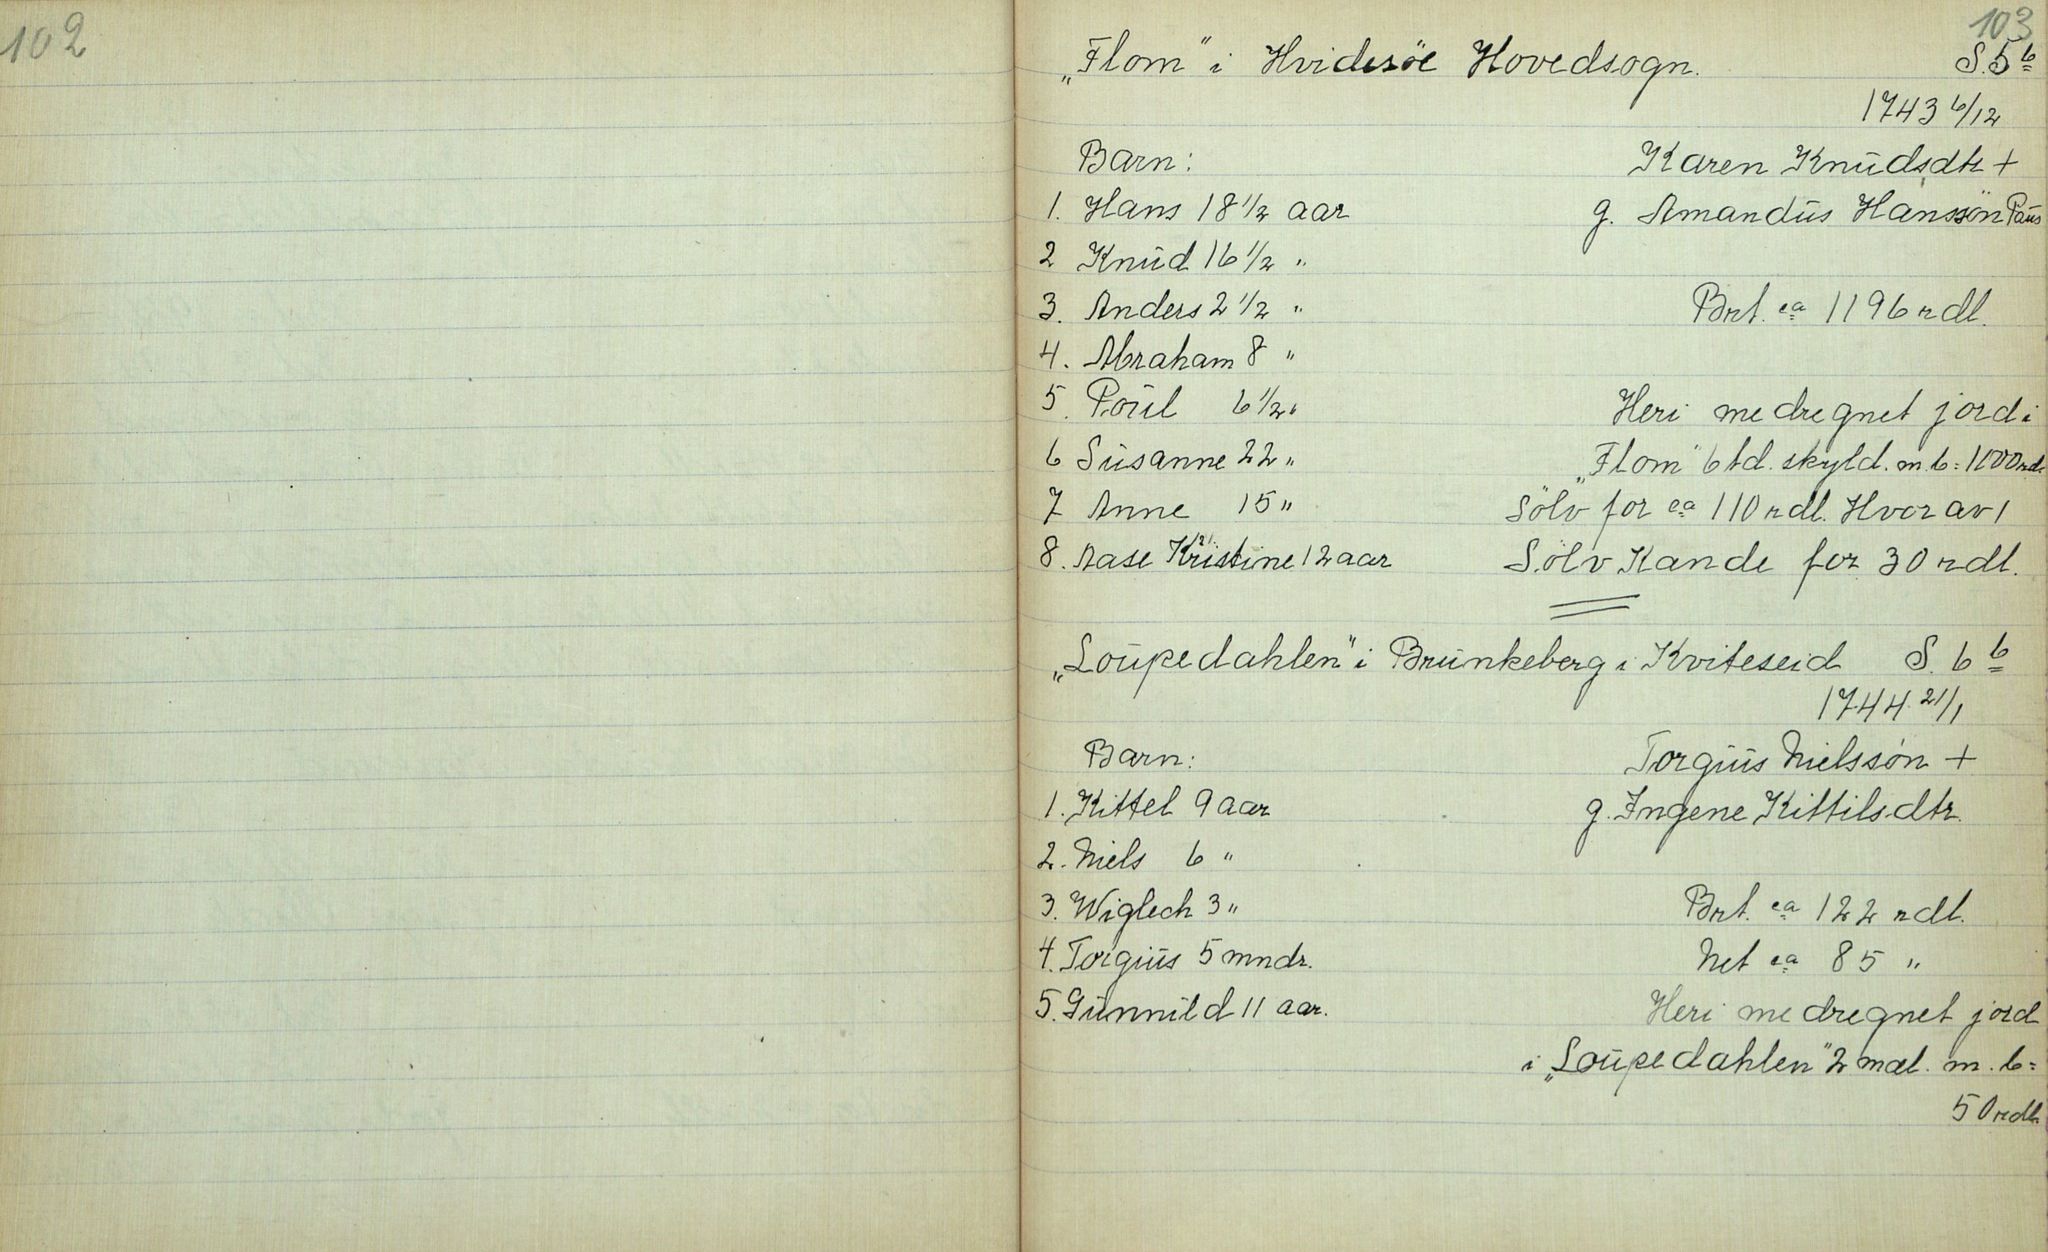 102
103
„Flom" i Hvidesöe Hovedsogn. S. 5 b
1743 6/12
Barn: Karen Knudsdtr +
1. Hans 18 1/2 aar g. Amandus Hanssön Paus
2 Knud 16 1/2 "
3. Anders 2 1/2 " Brt. ca 1196 rdl.
4. Abraham 8 "
5. Poul 6 1/2 " Heri medregnet jord i
6 Susanne 22 " „Flom" 6 td. skyld. m. b = 1100 rdl.
7 Anne 15 " Sölv for ca 110 rdl. Hvorav 1
8. Aase Kristine 12 aar Sölv Kande for 30 rdl.
„Loupedahlen" i Brunkeberg i Kviteseid S. 6 b
1744 21/1
Barn: Torgius Nielssön +
1. Kittel 9 aar g. Ingene Kittilsdtr.
2. Niels 6 "
3. Wiglech 3 " Brt. ca 122 rdl.
4. Torgius 5 mndr. Net ca 85 "
5. Gunnild 11 aar. Heri medregnet jord
i „Loupedahlen" 2 mæl. m. b =
50 rdl.